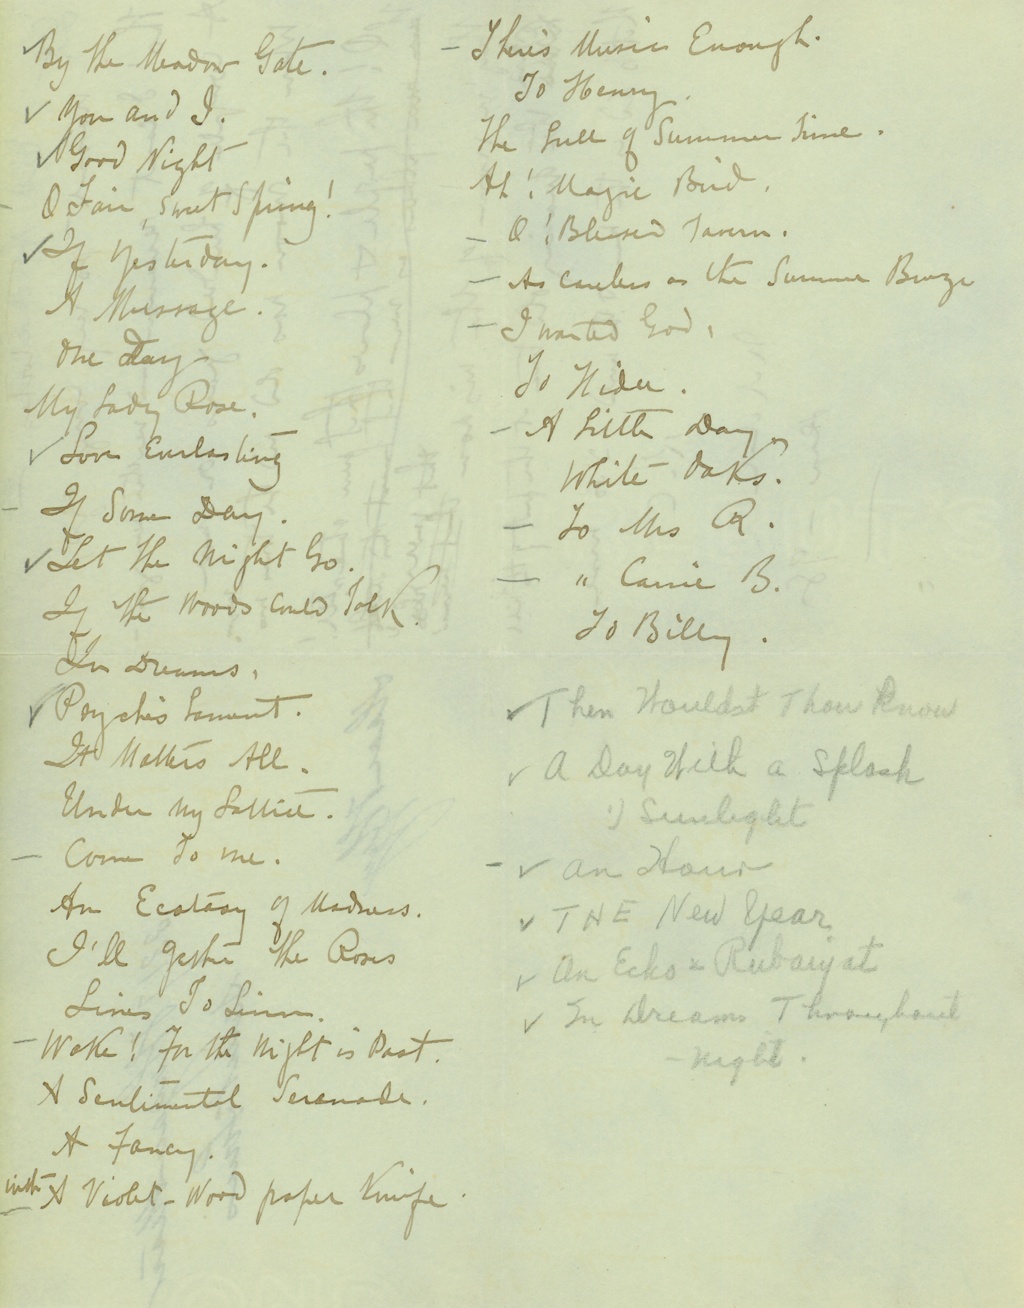 ✓ By the Meadow Gate.
✓ You and I.
✓ Good Night
- O Fair, Sweet Spring!
✓ If Yesterday.
A Message.
One Day-
My Lady Rose.
✓ Love Everlasting
- If Some Day.
✓ Let the Night Go.
If the Woods Could Talk.
In Dreams.
✓ Psyche's Lament.
It Matters All.
Under My Lattice.
- Come To Me.
An Ecstasy of Madness.
I'll gather the Roses
Lines To
- Wake! For the Night is Past.
A Sentimental Serenade.
A Fancy.
with A Violet-Wood paper Knife.
- There's Music Enough.
To Henry.
The Lull of Summer time.
Ah! Magic Bird.
- O! Blessed Tavern.
- As careless as the Summer Breeze
- I wanted God.
To
- A Little Day
White Oaks.
- To Mrs R.
- " Carrie B.
To Billy.
✓ Then Wouldst Thou Know
✓ A Day With a Splash
of Sunlight
- ✓ An Hour
✓ THE New Year
✓ An Echo Rubaiyat
✓ In Dreams Throughout
- night.